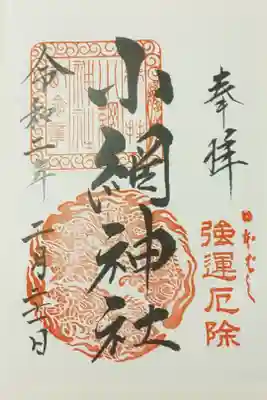 奉拝
日本ばし
強運厄除
小網神社
令和二年
二月二十二日